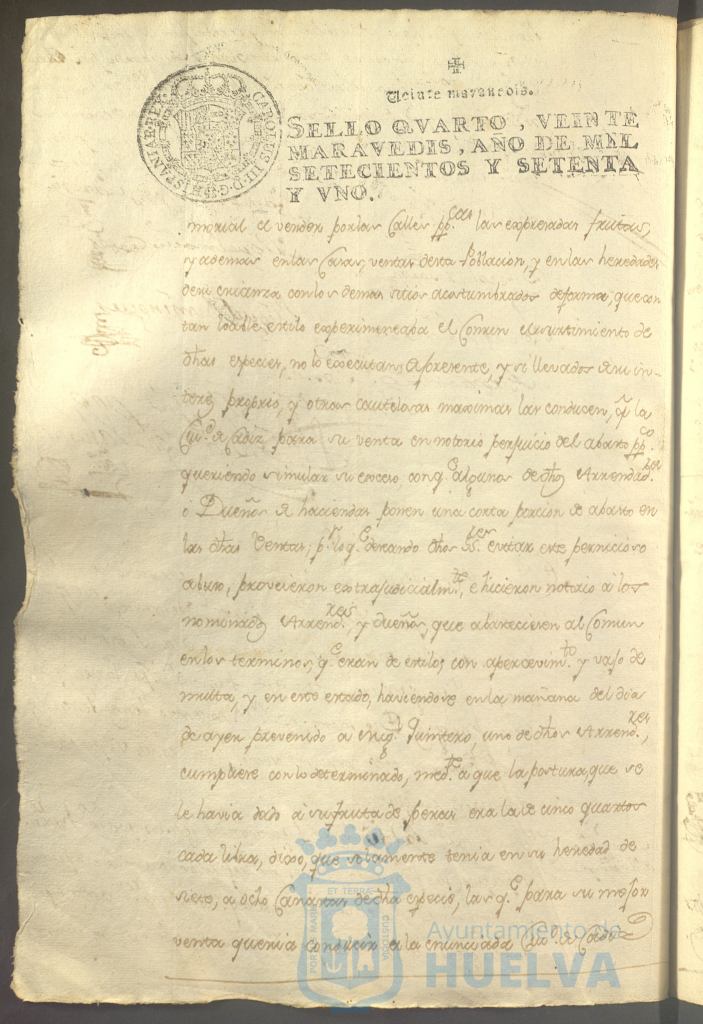 CAROLUS III D. G. HISPANIAR. REX.
Veinte maravedis.
SELLO QVARTO, VEINTE
MARAVEDIS, AÑO DE MIL
SETECIENTOS Y SETENTA
Y VNO.
morial el vender por las Calles pp.cas las expresadas frutas,
y ademas en las Casas, ventas desta Poblacion, y en las heredades
de su crianza con los demas sitios acostumbrados de forma, que con
tan loable estilo experimentaba el Comun el surtimiento de
dhas especies, no lo executan Al presente, y si llevados de su in-
teres proprio, y otras cautelosas maximas las conducen, a la
Ciu.d de Cadiz para su venta en notorio perjuicio del abasto pp.co
queriendo simular su exceso con q.e algunos de dhos Arrendad.res
o Dueños de haciendas ponen una corta porcion de abasto en
las dhas Ventas, p.r lo q.e deseando dhos SS.res evitar este pernicioso
abuso, proveieron extrajudicialm.te, e hicieron notorio a los
nominados Arrend.res, y dueños, que abastecieren al Comun
en los terminos, q.e eran de estilo, con apercevim.to y vajo de
multa, y en este estado, haviendose en la mañana del dia
de ayer prevenido a Mig.l Quintero, uno de dhos Arrend.res,
cumpliese con lo determinado, med.te a que la postura, que se
le havia dado a su fruta de peras era la de cinco quartos
cada libra, dixo, que solamente tenia en su heredad de
siete, a ocho Canastas de dha especie, las q.e para su mejor
venta queria conducir a la enunciada Ciu.d de Cadiz
PORTUS MARIS ET TERRAE CUSTODIA
Ayuntamiento de
HUELVA